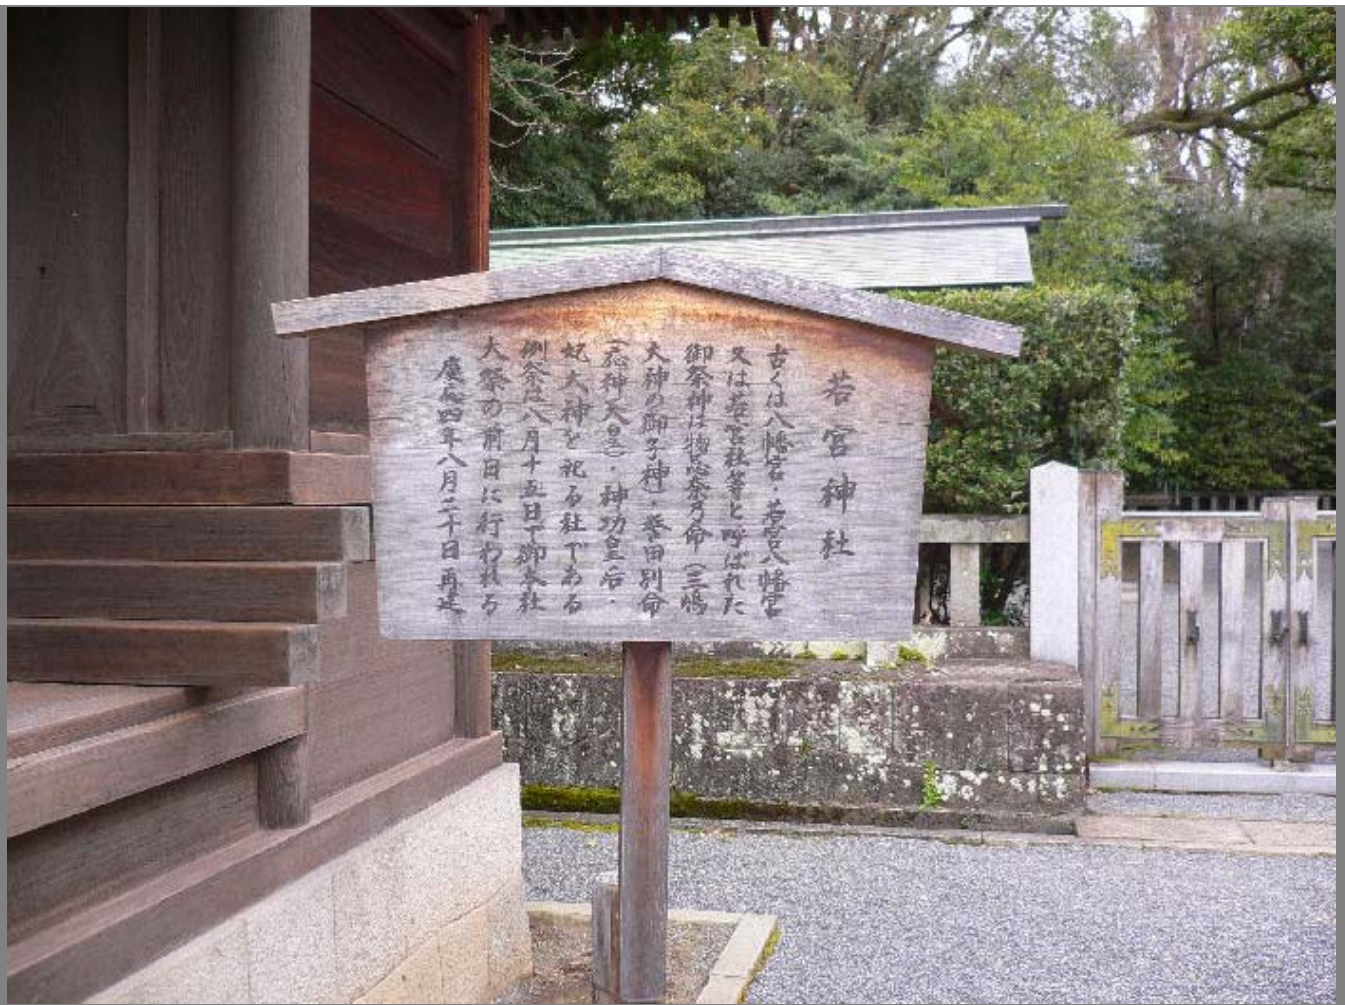 若宮神社
古くは八幡宮・若宮八幡宮
又は若宮社等と呼ばれた
御祭神は物忌奈乃命(三嶋
大神の御子神)・誉田別命
(応神天皇)・神功皇后・
妃大神を祀る社である
例祭は八月十五日で御本社
大祭の前日に行われる
慶応四年八月二十日再建